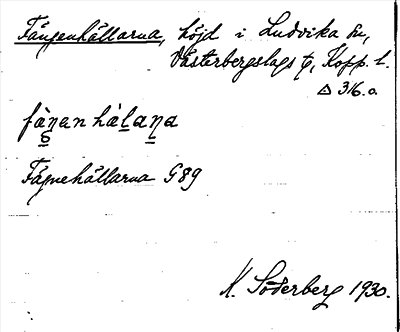 Fängenhällarna, höjd i Ludvika sn,
Västerbergslags tg, Kopp. l.
△ 316.0
fàŋan hàlaŋa
Fägnehällarna G89
K. Söderberg 1930.